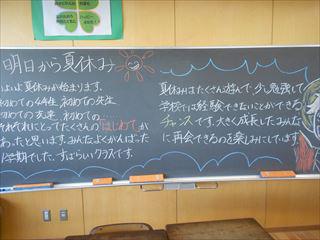 明日から夏休み
いよいよ夏休みが始まります。
初めての4年生、初めての先生
初めての友達、初めての…
それぞれにとってたくさんの"はじめて"が
あったと思います。みんなよくがんばった
1学期でした。すばらしいクラスです。
夏休みはたくさん遊んで、少し勉強して
学校では経験できないことができる
チャンスです。大きく成長したみんな
に再会できるのを楽しみにしています。